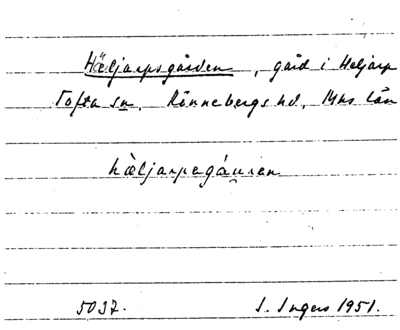 Häljarpsgården, gård i Heljarp
Tofta sn, Rönnebergs hd, Mhs län
hæljarpegáuren
5037. I. Ingers 1951.